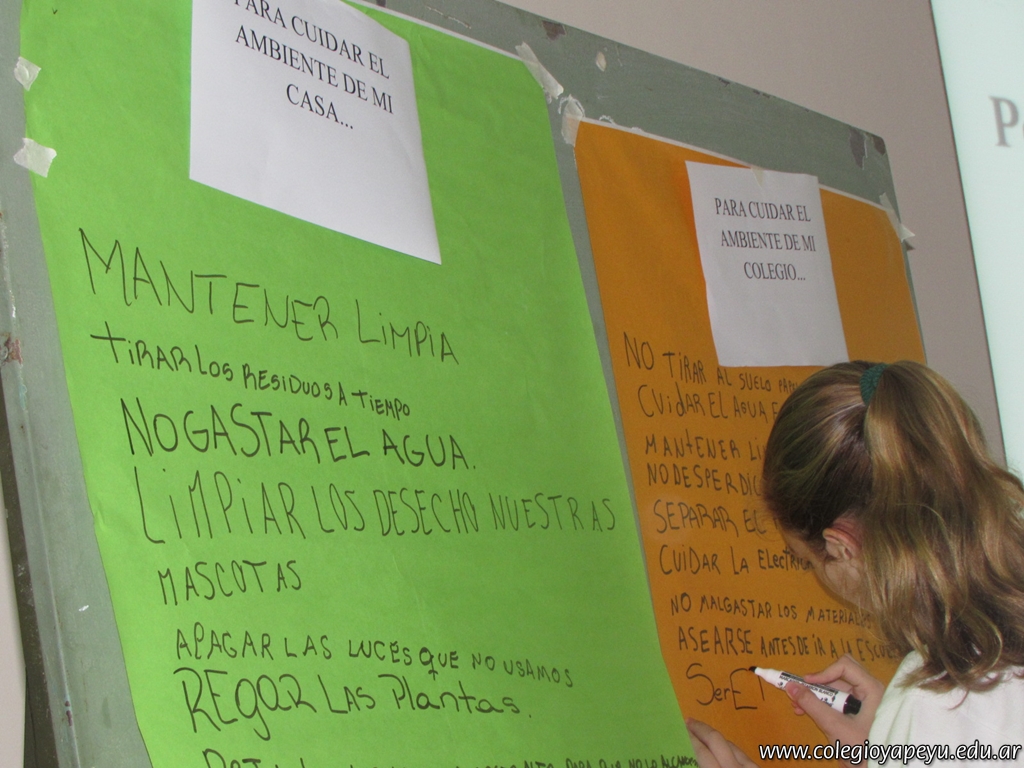 PARA CUIDAR EL
AMBIENTE DE MI
CASA...
MANTENER LiMPIA
TIRAR LOS RESIDUOS A TIEMPO
NO GASTAR EL AGUA.
LiMPIAR LOS DESECHO NUESTRAS
MASCOTAS
APAGAR LAS LUCES QUE NO USAMOS
REGAR LAS Plantas.
PARA CUIDAR EL
AMBIENTE DE MI
COLEGIO...
NO TIRAR AL SUELO
CUidAR EL AGUA
MANTENER
SEPARAR
CUIDAR LA
NO MALGASTAR LOS
ASEARSE ANTES DE IR A LA
SerE
www.colegioyapeyu.edu.ar